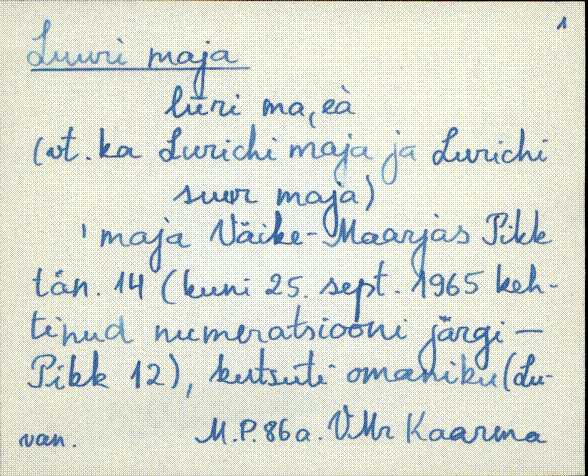 1
Luuri maja
lūri ma,eà
(vt. ka Lurichi maja ja Lurichi
suur maja)
'maja Väike-Maarjas Pikk
tän. 14 (kuni 25. sept. 1965 keh-
tinud numeratsiooni järgi —
Pikk 12), kutsuti omaniku (Lu-
van. M.P. 86a. VMr Kaarma